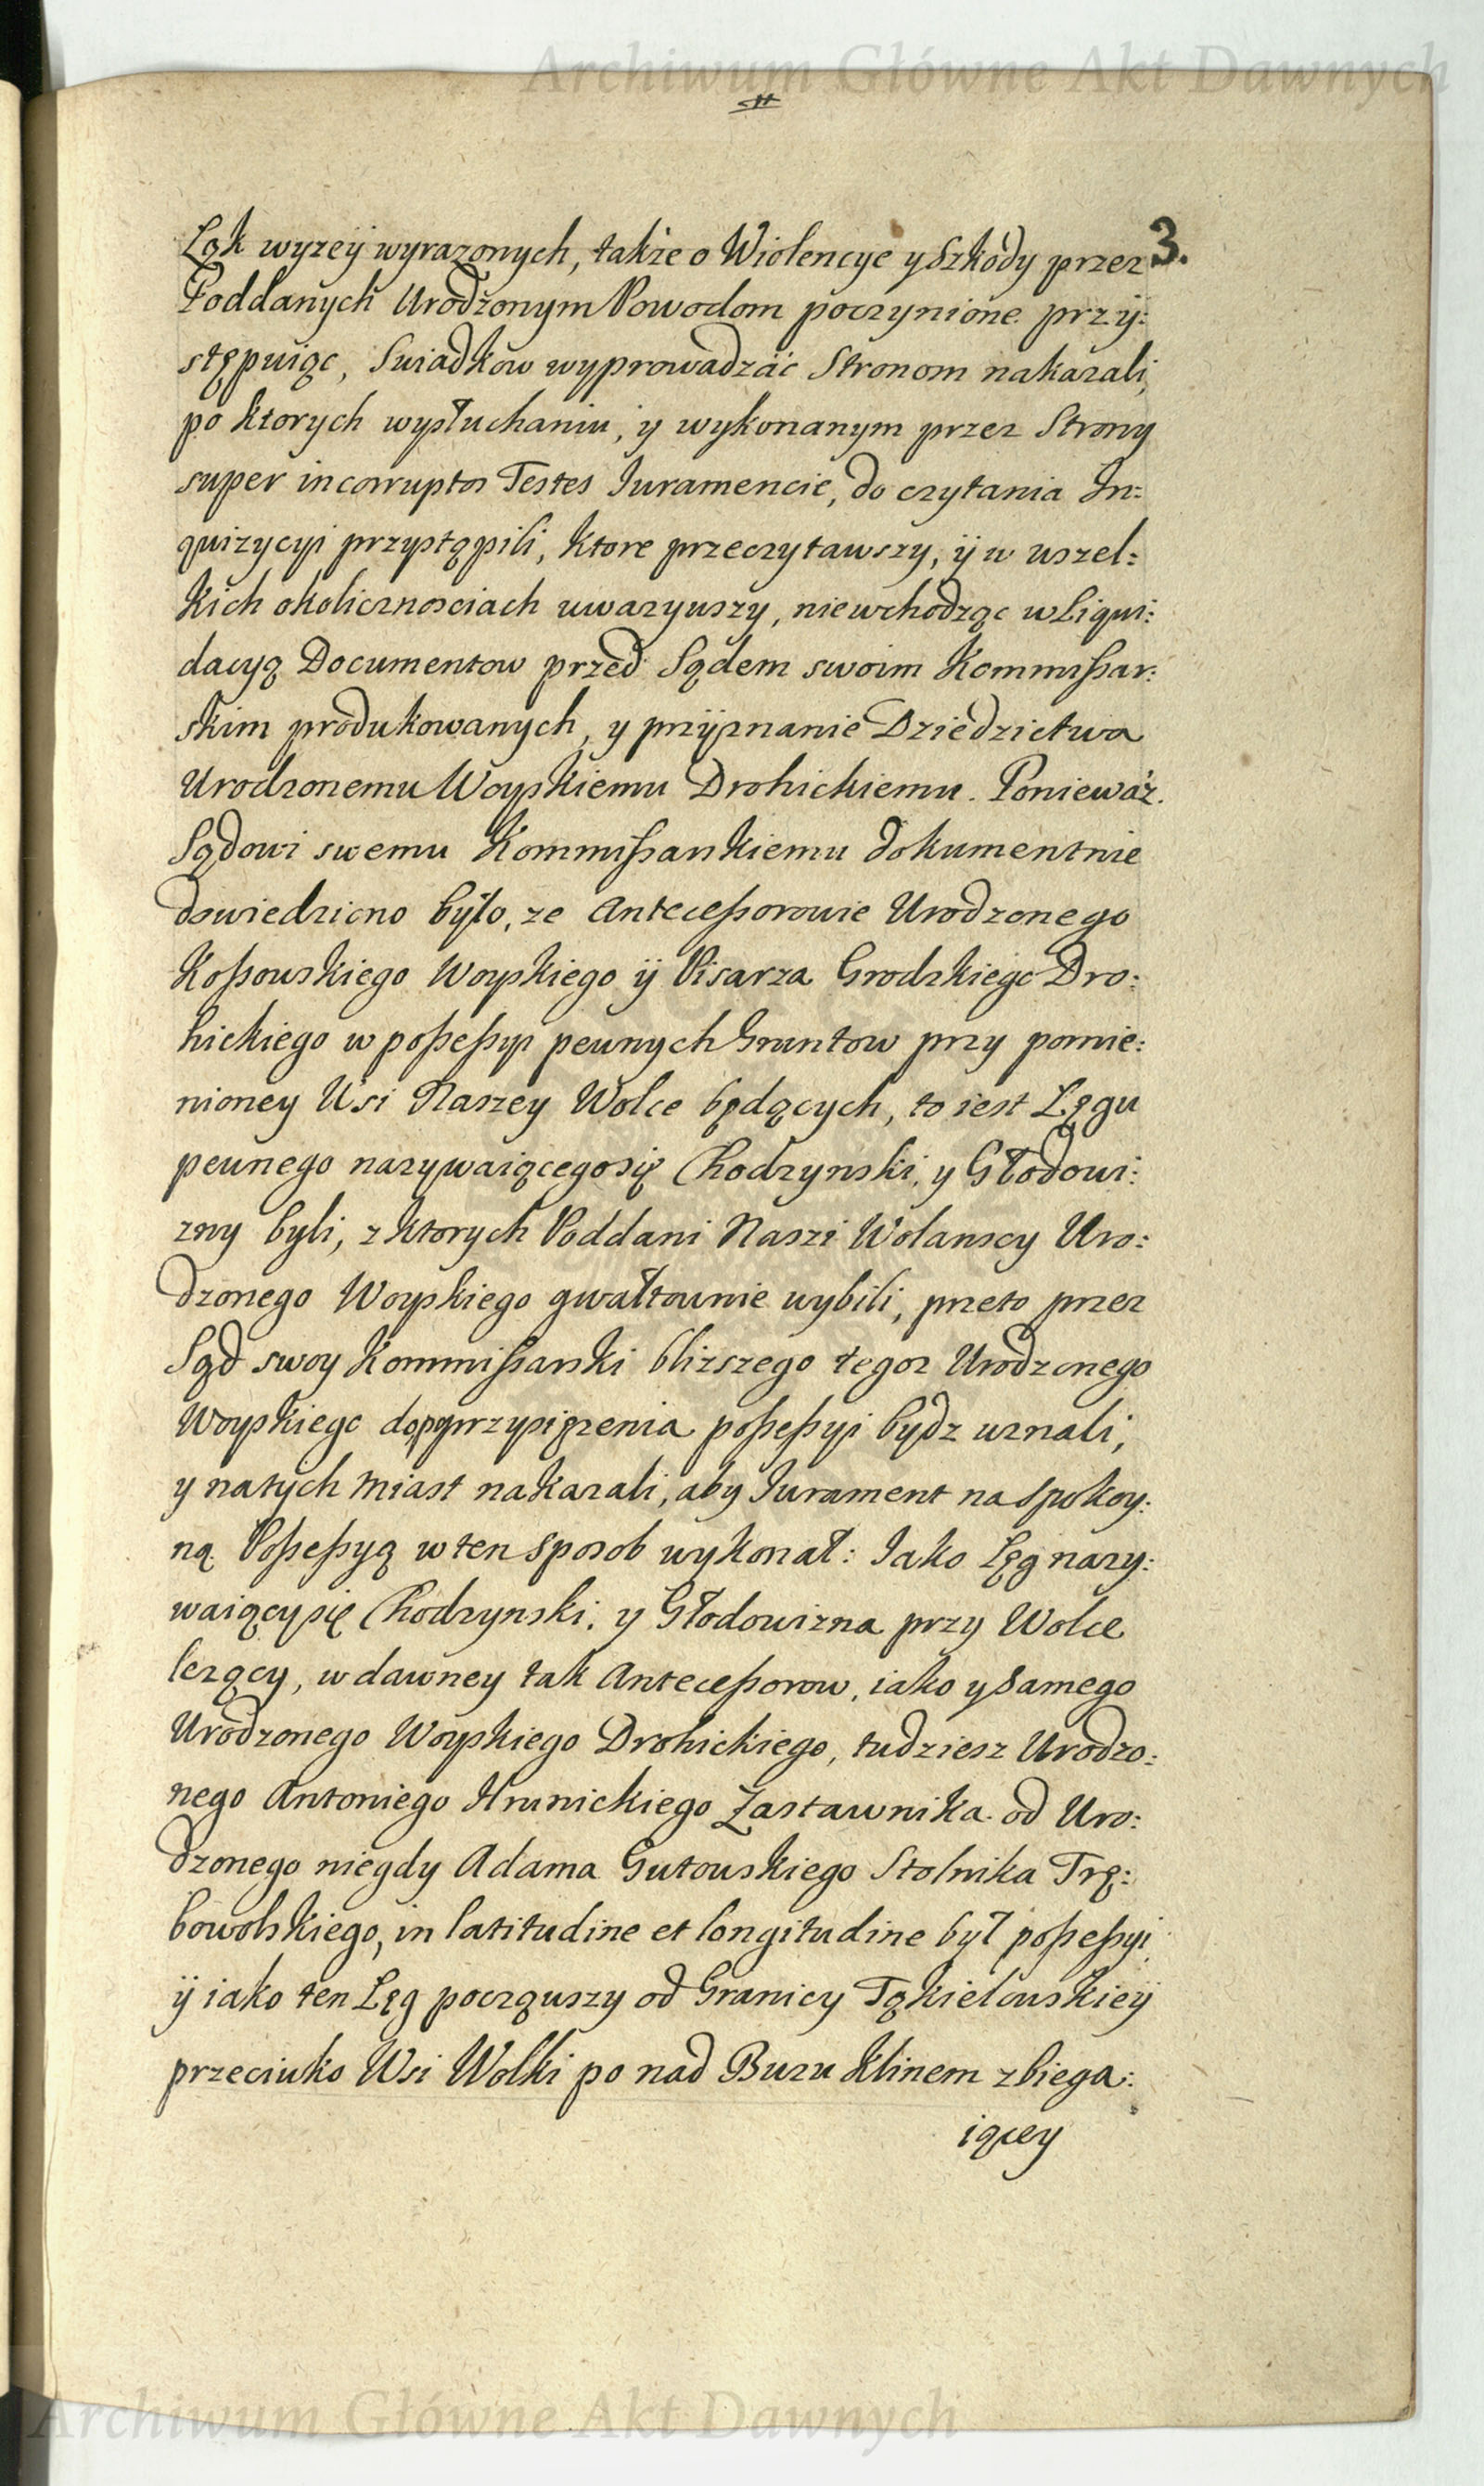 Archiwum Główne Akt Dawnych
3.
Łąk wyzeÿ wyrazonych, także o Wiolencye y Szkody przez
Poddanych Urodzonym Powodom poczynione przÿ:
stępuiąc, Swiadkow wyprowadzać Stronom nakazali,
po ktorych wysłuchaniu, y wykonanym przez Strony
super incorruptos Testes Iuramencie, do czytania In:
quizycyi przystąpili, ktore przeczytawszy, ÿ w wszel:
kich okolicznosciach uwazywszy, niewchodząc w Liqui:
dacyą Documentow przed Sądem swoim Kommißar:
skim produkowanych, y przÿznanie Dziedzictwa
Urodzonemu Woyskiemu Drohickiemu. Ponieważ.
Sądowi swemu Kommißarskiemu dokumentnie
dowiedziono było, ze Anteceßorowie Urodzonego
Koßowskiego Woyskiego ÿ Pisarza Grodzkiego Dro:
hickiego w poßeßyi pewnych Gruntow przy pomie:
nioney Wsi Naszey Wolce będących, to iest Lęgu
pewnego nazywaiącego się Chodzynski, y Głodowi:
zny byli, z ktorych Poddani Naszi Wolanscy Uro:
dzonego Woyskiego gwałtownie wybili, przeto przez
Sąd swoy Kommißarski blizszego tegoz Urodzonego
Woyskiego do poprzysiężenia poßeßyi bydz uznali,
y natych miast nakazali, aby Iurament na spokoy:
ną Poßeßyą w ten sposob wykonał: Iako Lęg nazy:
waiący się Chodzynski, y Głodowizna przy Wolce
lezący, w dawney tak Anteceßorow, iako y samego
Urodzonego Woyskiego Drohickiego, tudziesz Urodzo:
nego Antoniego Hrunickiego Zastawnika od Uro:
dzonego niegdy Adama Gutowskiego Stolnika Trę:
bowolskiego, in latitudine et longitudine był poßeßyi,
ÿ iako ten Lęg począwszy od Granicy Tąkielowskieÿ
przeciwko Wsi Wolki po nad Buzu Klinem zbiega:
iącey
Archiwum Główne Akt Dawnych